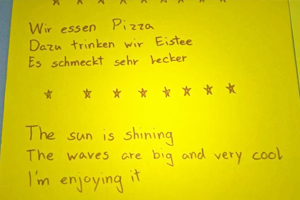 Wir essen Pizza
Dazu trinken wir Eistee
Es schmeckt sehr lecker
The sun is shining
The waves are big and very cool
I'm enjoying it